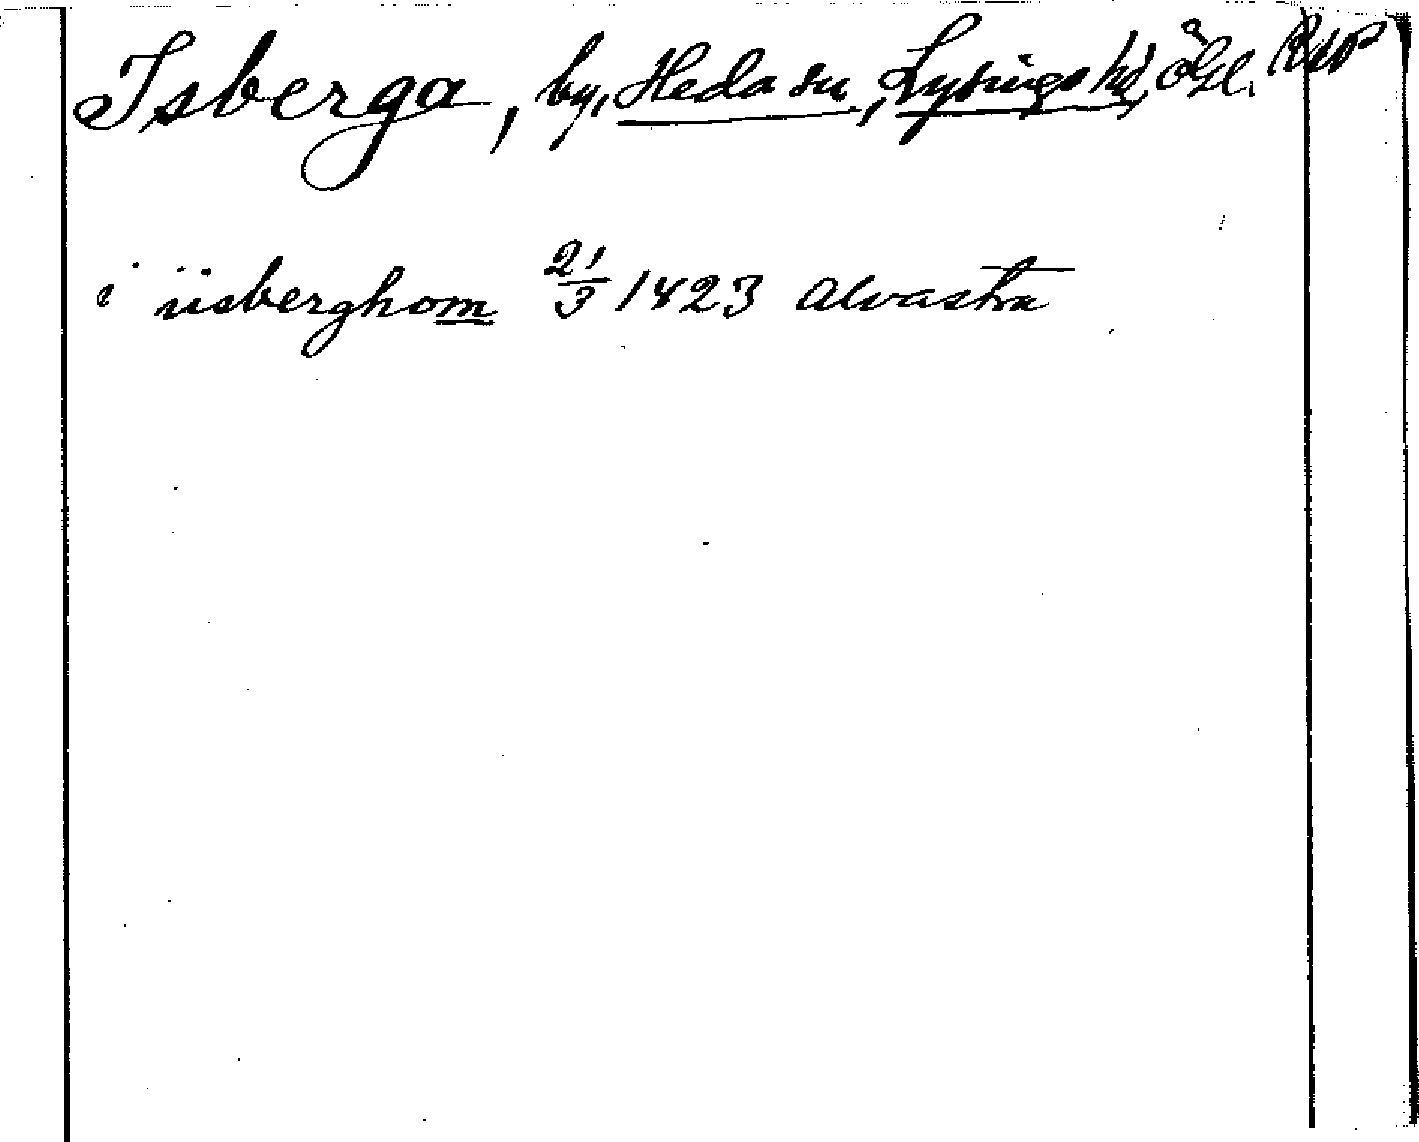 Isberga, by, Heda sn, Lysings hd, Ögl. RAP
i iisberghom 21/3 1423 Alvastra